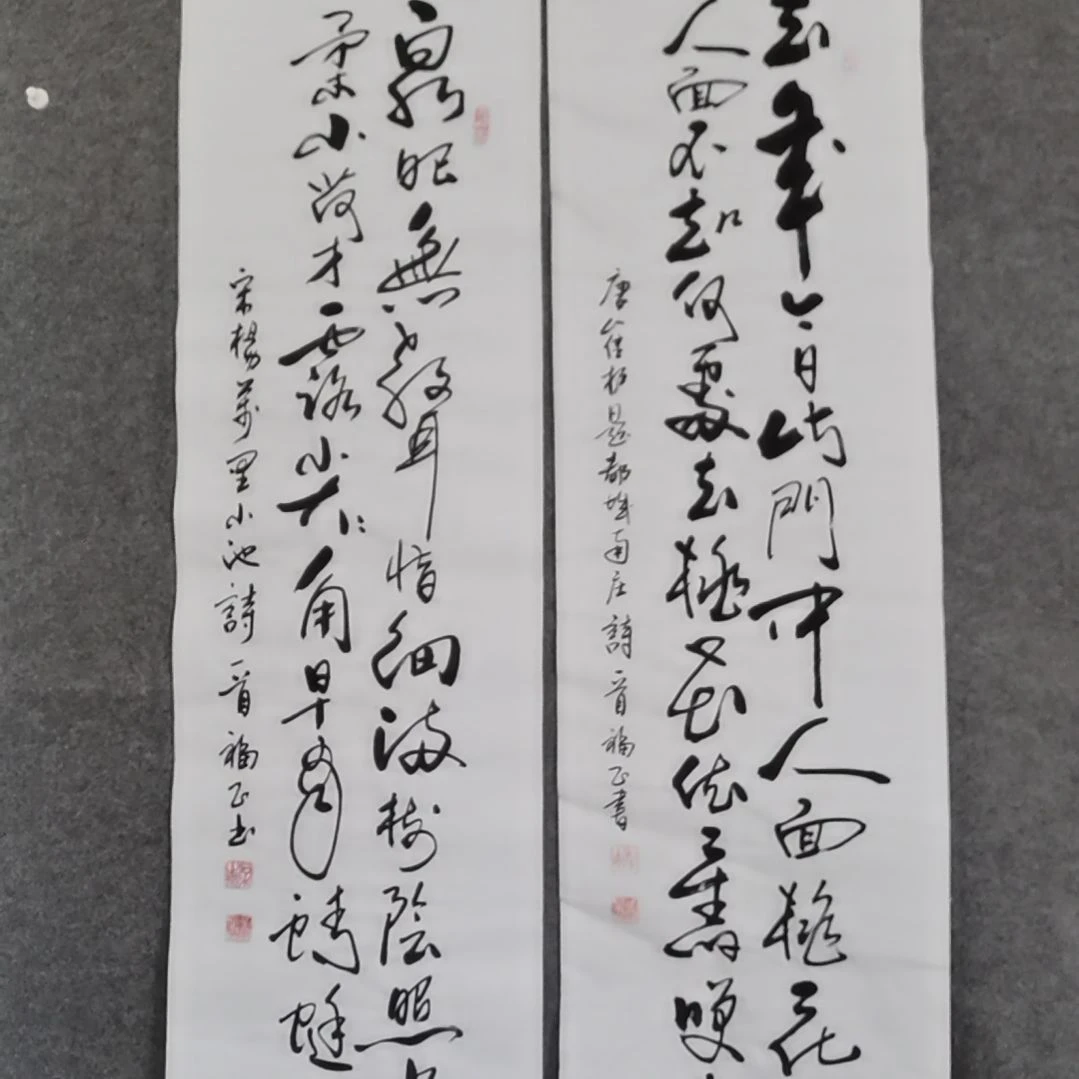 去年今日此門中人面桃花
人面不知何處去桃花依舊暎
唐崔护題都城南庄詩一首福正書
泉眼無聲惜細流樹陰照
柔小荷才露尖々角早有蜻蜓
宋楊萬里小池詩一首福正书